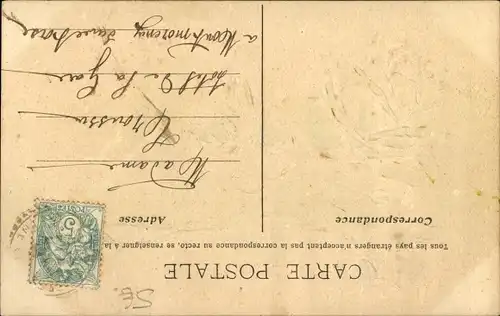 CARTE POSTALE
Tous les pays étrangers n'acceptent pas la correspondance au recto, se renseigner à la
Correspondance
Adresse
Madame
Hôtel de la Gare
à Montmorency
5
5E.